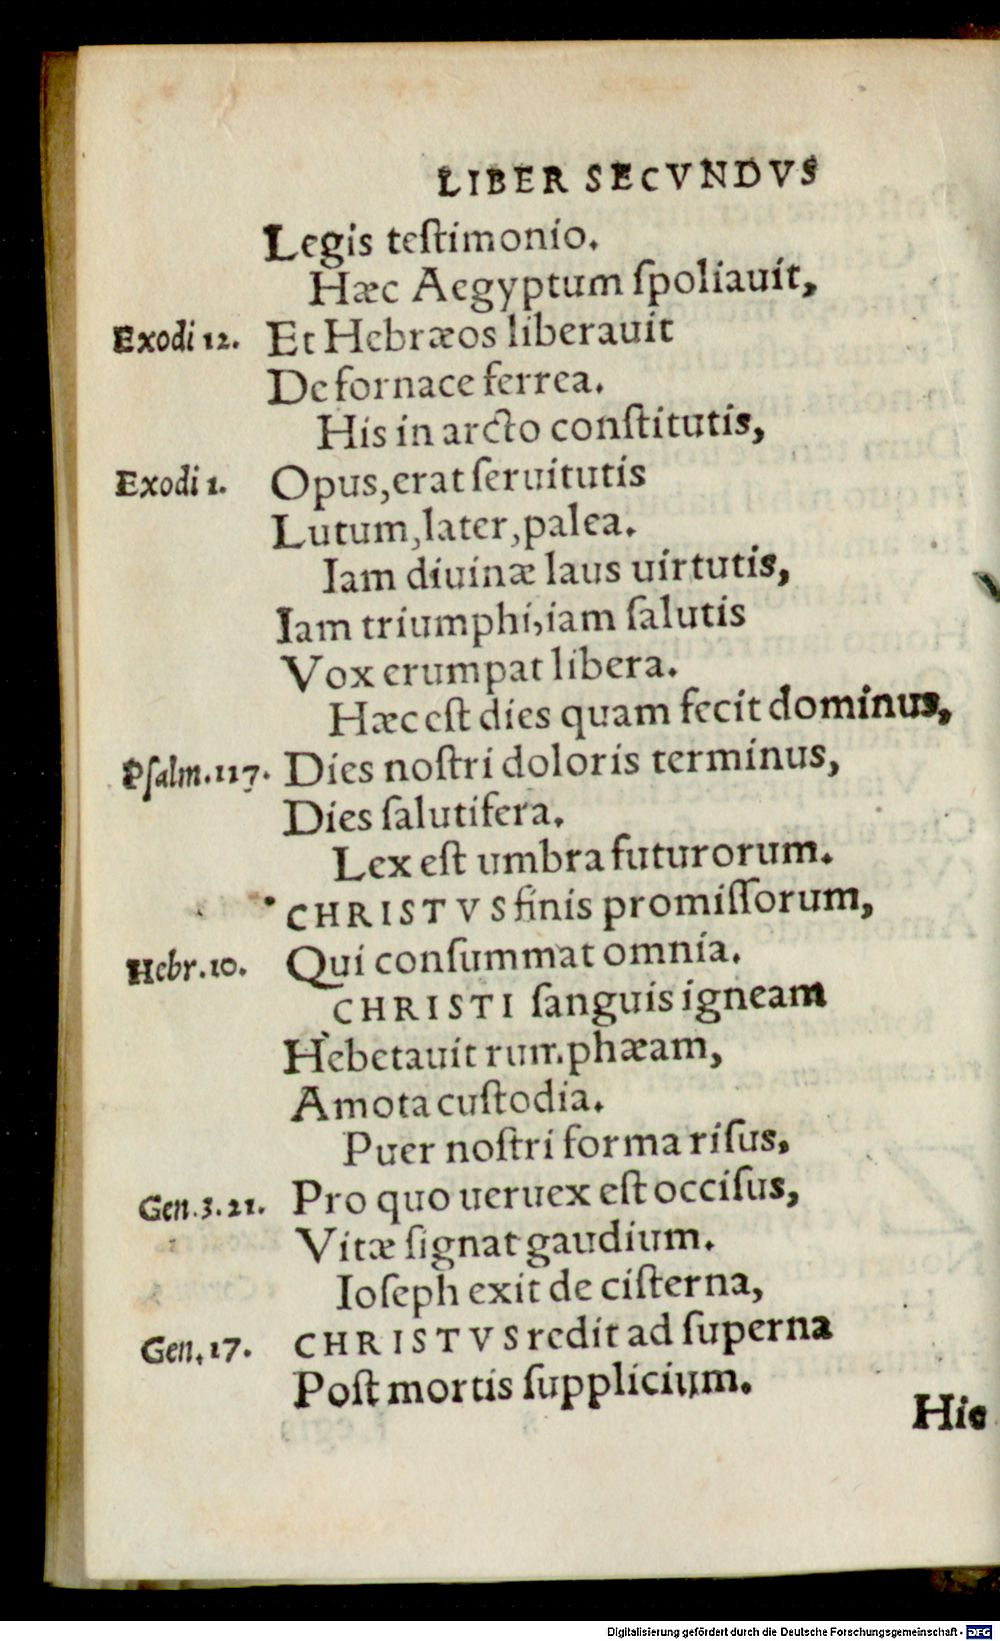 LIBER SECVNDVS
Legis teſtimonio.
Hæc Aegyptum ſpoliauit,
Exodi 12. Et Hebræos liberauit
De fornace ferrea.
His in arcto conſtitutis,
Exodi 1. Opus, erat ſeruitutis
Lutum, later, palea.
Iam diuinæ laus uirtutis,
Iam triumphi, iam ſalutis
Vox erumpat libera.
Hæc eſt dies quam fecit dominus,
Pſalm. 117. Dies noſtri doloris terminus,
Dies ſalutifera.
Lex eſt umbra futurorum.
CHRISTVS finis promiſſorum,
Hebr. 10. Qui conſummat omnia.
CHRISTI ſanguis igneam
Hebetauit rumphæam,
Amota cuſtodia.
Puer noſtri forma riſus,
Gen. 3. 21. Pro quo ueruex eſt occiſus,
Vitæ ſignat gaudium.
Ioſeph exit de ciſterna,
Gen. 17. CHRISTVS redit ad ſuperna
Poſt mortis ſupplicium.
Hic
Digitalisierung gefördert durch die Deutsche Forschungsgemeinschaft - DFG